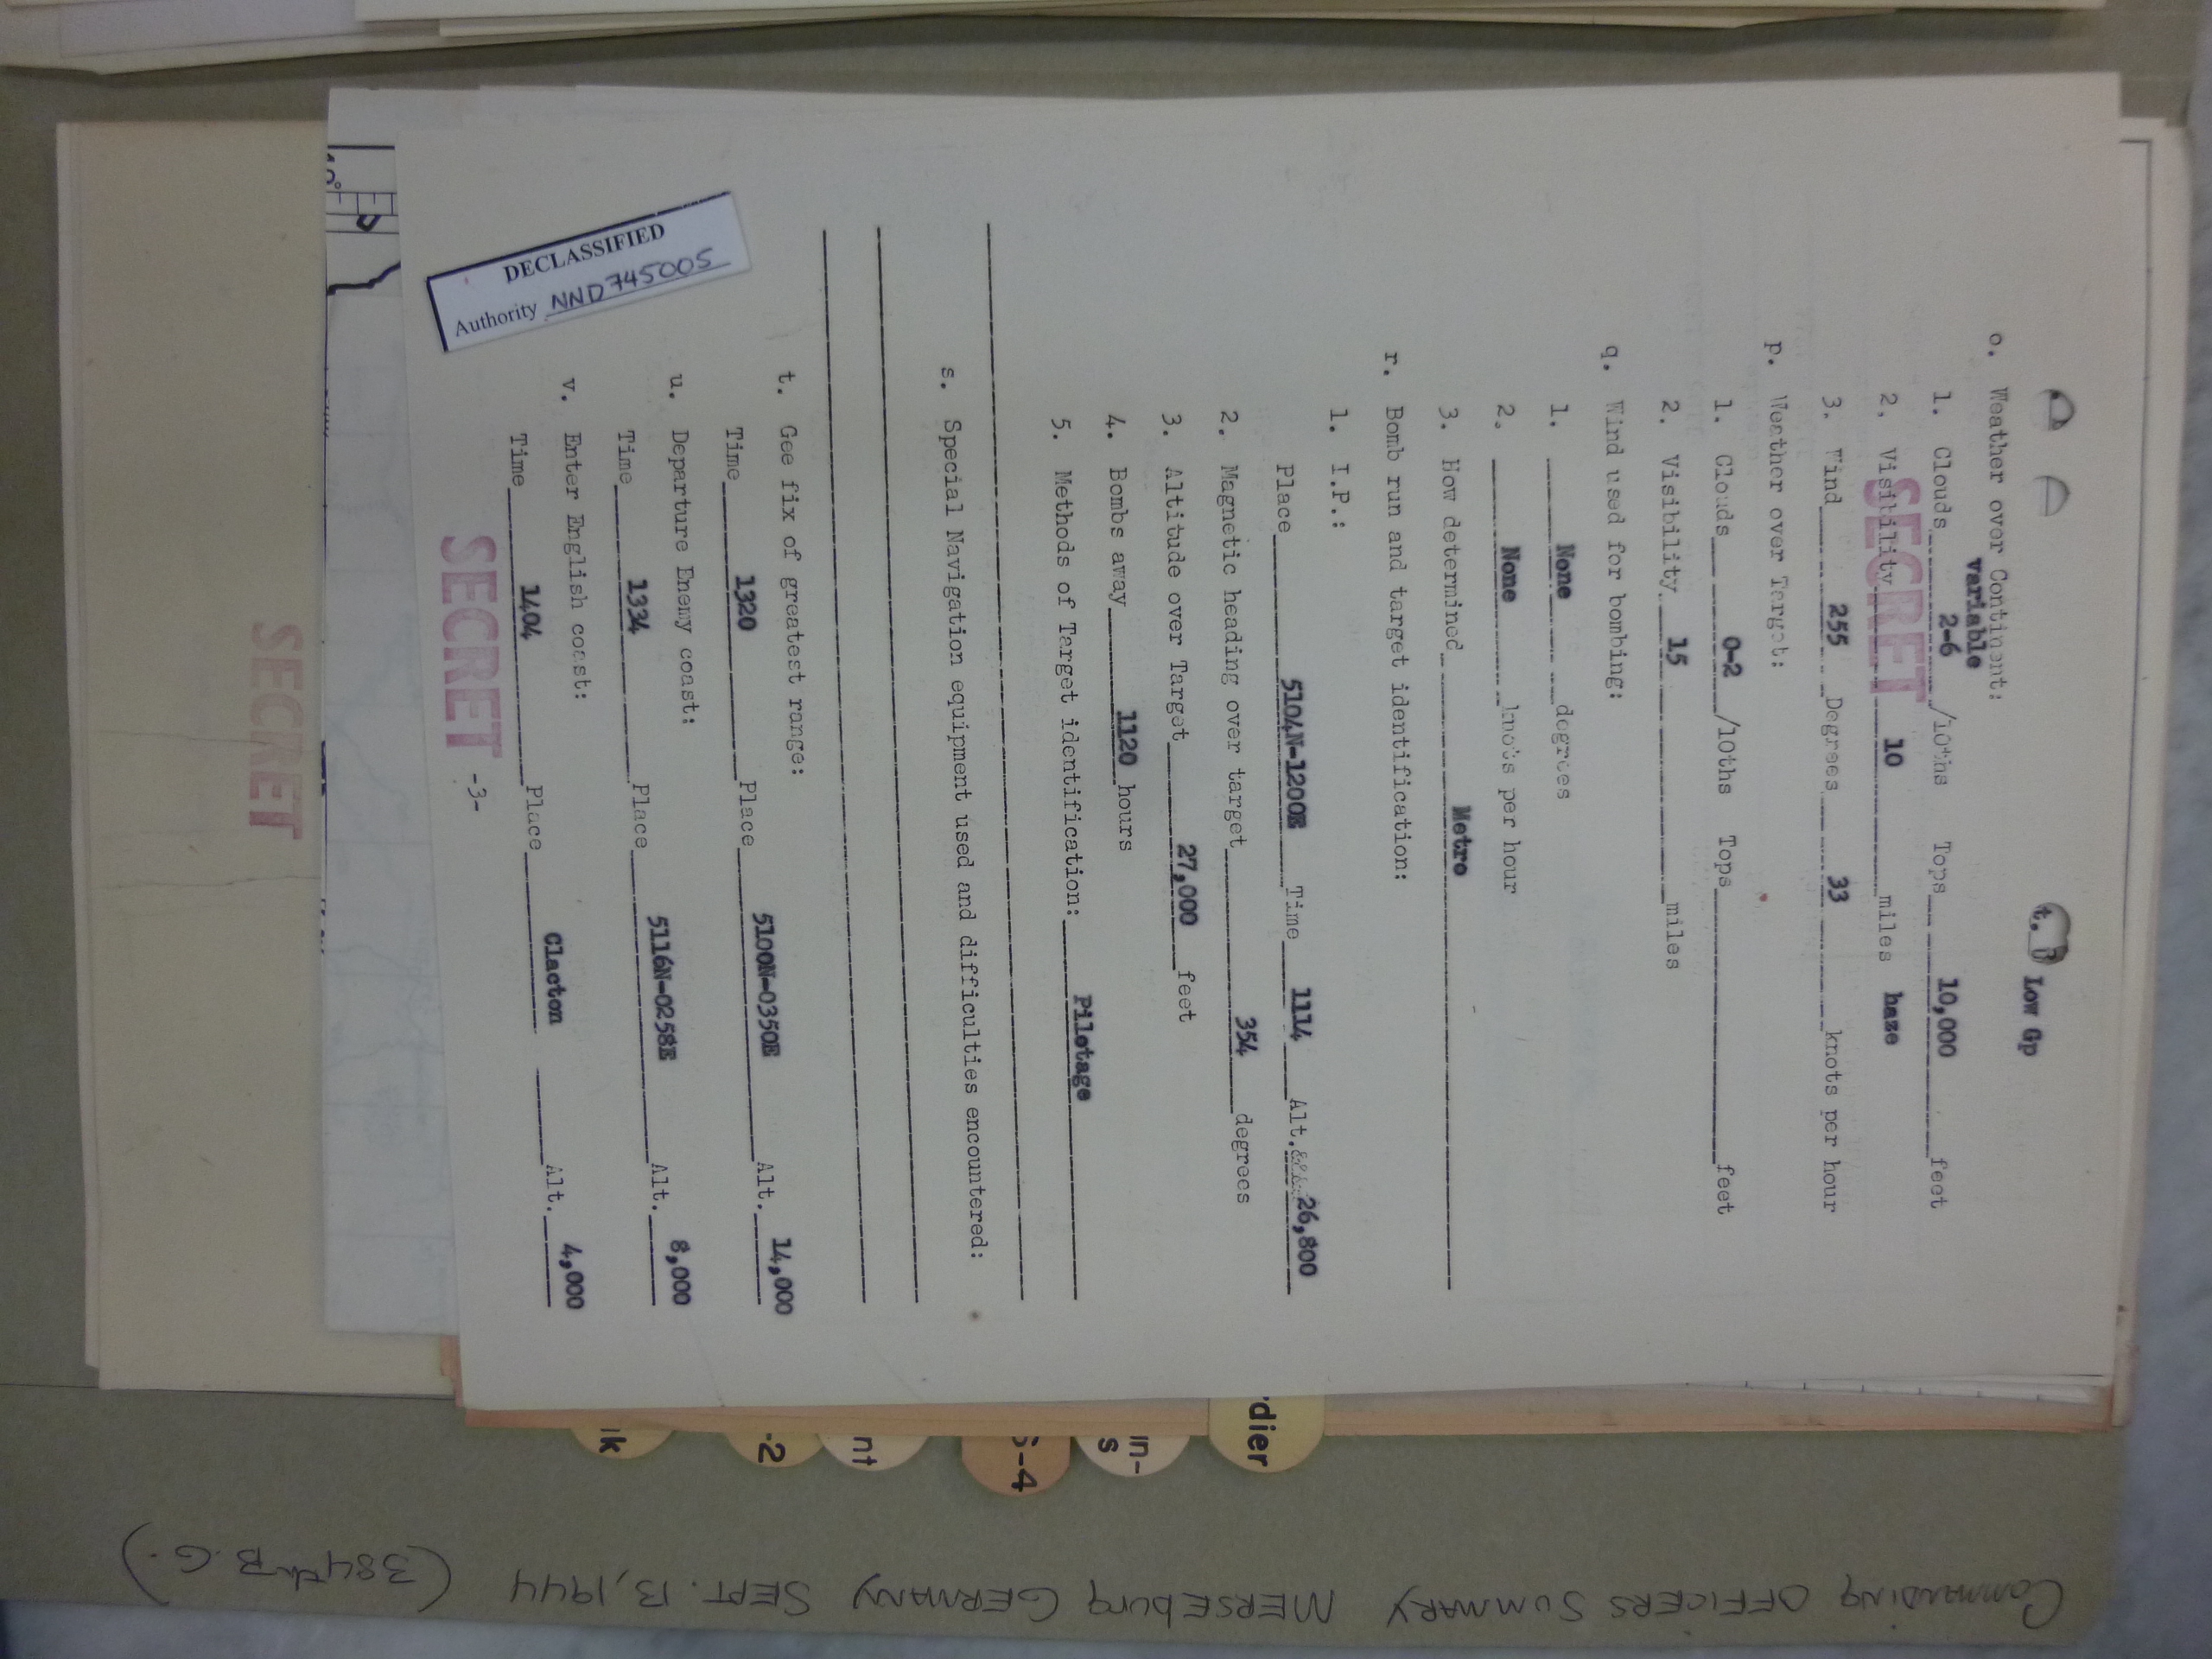 Low Gp
o. Weather over Continent:
variable
1. Clouds 2-6 /10ths Tops 10,000 feet
SECRET
2. Visibility 10 miles haze
3. Wind 255 Degrees 33 knots per hour
p. Weather over Target:
1. Clouds 0-2 /10ths Tops feet
2. Visibility 15 miles
q. Wind used for bombing:
1. None degrees
2. None knots per hour
3. How determined Metro
r. Bomb run and target identification:
1. I.P.:
Place 5104N-1200E Time 1114 Alt. 26,800
2. Magnetic heading over target 354 degrees
3. Altitude over Target 27,000 feet
4. Bombs away 1120 hours
5. Methods of Target identification: Pilotage
s. Special Navigation equipment used and difficulties encountered:
t. Gee fix of greatest range:
Time 1320 Place 5100N-0350E Alt. 14,000
u. Departure Enemy coast:
Time 1334 Place 5116N-0258E Alt. 8,000
v. Enter English coast:
Time 1404 Place Clacton Alt. 4,000
-3-
SECRET
DECLASSIFIED
Authority NND745005
SECRET
dier
in-
s
-4
nt
-2
ik
COMMANDING OFFICERS SUMMARY MERSEBURG GERMANY SEPT. 13, 1944 (384th B.G.)